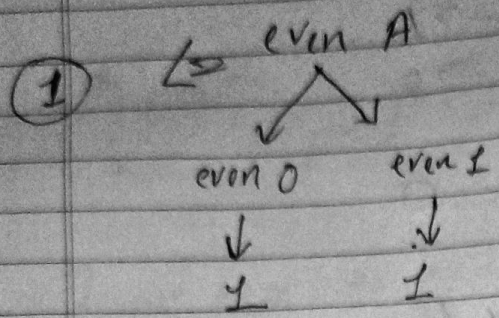 1 L> even A
even 0 even 1
1 1